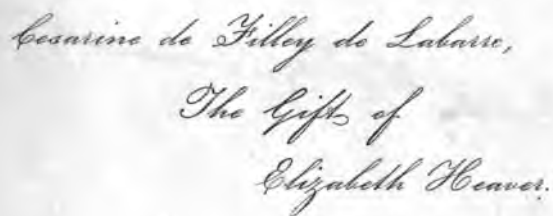 Cesarine de Filley de Labarre,
The Gift of
Elizabeth Heaver.